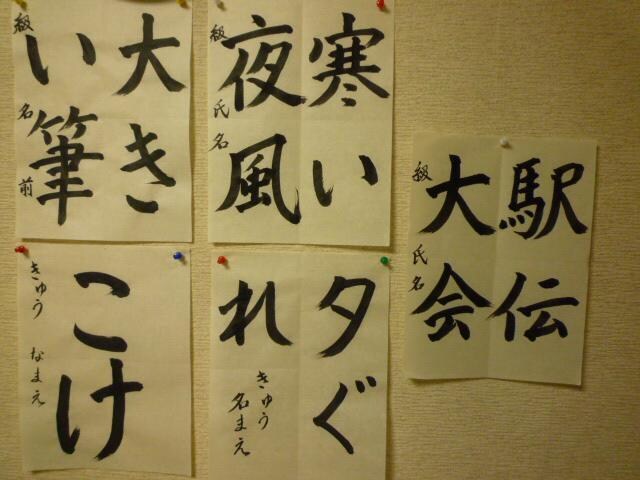 大き
い筆
級
名前
寒い
夜風
級
氏名
駅伝
大会
級
氏名
こけ
きゅう
なまえ
夕ぐ
れ
きゅう
名まえ